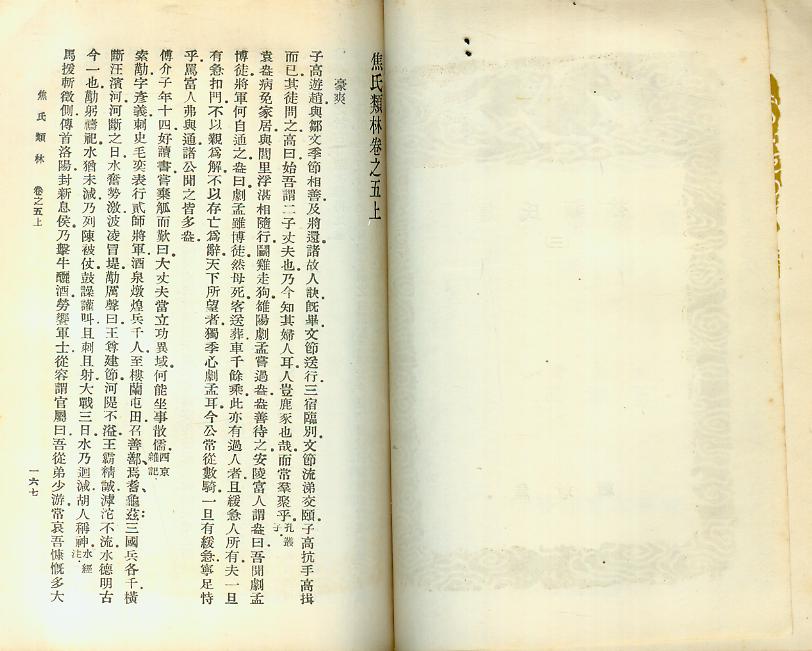 焦氏類林卷之五上
豪爽
子高遊趙與鄒文季節相善及將還諸故人訣旣畢文節送行三宿臨別文節流涕交頤子高抗手高揖
而已其徒問之高曰始吾謂二子丈夫也乃今知其婦人耳人豈鹿豕也哉而常羣聚乎孔叢子
袁盎病免家居與閭里浮湛相隨行鬭雞走狗雒陽劇孟嘗過盎盎善待之安陵富人謂盎曰吾聞劇孟
博徒將軍何自通之盎曰劇孟雖博徒然母死客送葬車千餘乘此亦有過人者且緩急人所有夫一旦
有急扣門不以親爲解不以存亡爲辭天下所望者獨季心劇孟耳今公常從數騎一旦有緩急寧足恃
乎罵富人弗與通諸公聞之皆多盎
傅介子年十四好讀書嘗棄觚而歎曰大丈夫當立功異域何能坐事散儒西京雜記
索勱字彥義刺史毛奕表行貳師將軍酒泉燉煌兵千人至樓蘭屯田召善鄯焉耆龜茲三國兵各千橫
斷汪濱河河斷之日水奮勢激波凌冒堤勱厲聲曰王尊建節河隄不溢王霸精誠滹沱不流水德明古
今一也勱躬禱祀水猶未減乃列陳被仗鼓譟讙叫且刺且射大戰三日水乃迴減胡人稱神水經注
馬援斬徵側傳首洛陽封新息侯乃擊牛釃酒勞饗軍士從容謂官屬曰吾從弟少游常哀吾慷慨多大
焦氏類林 卷之五上
一六七